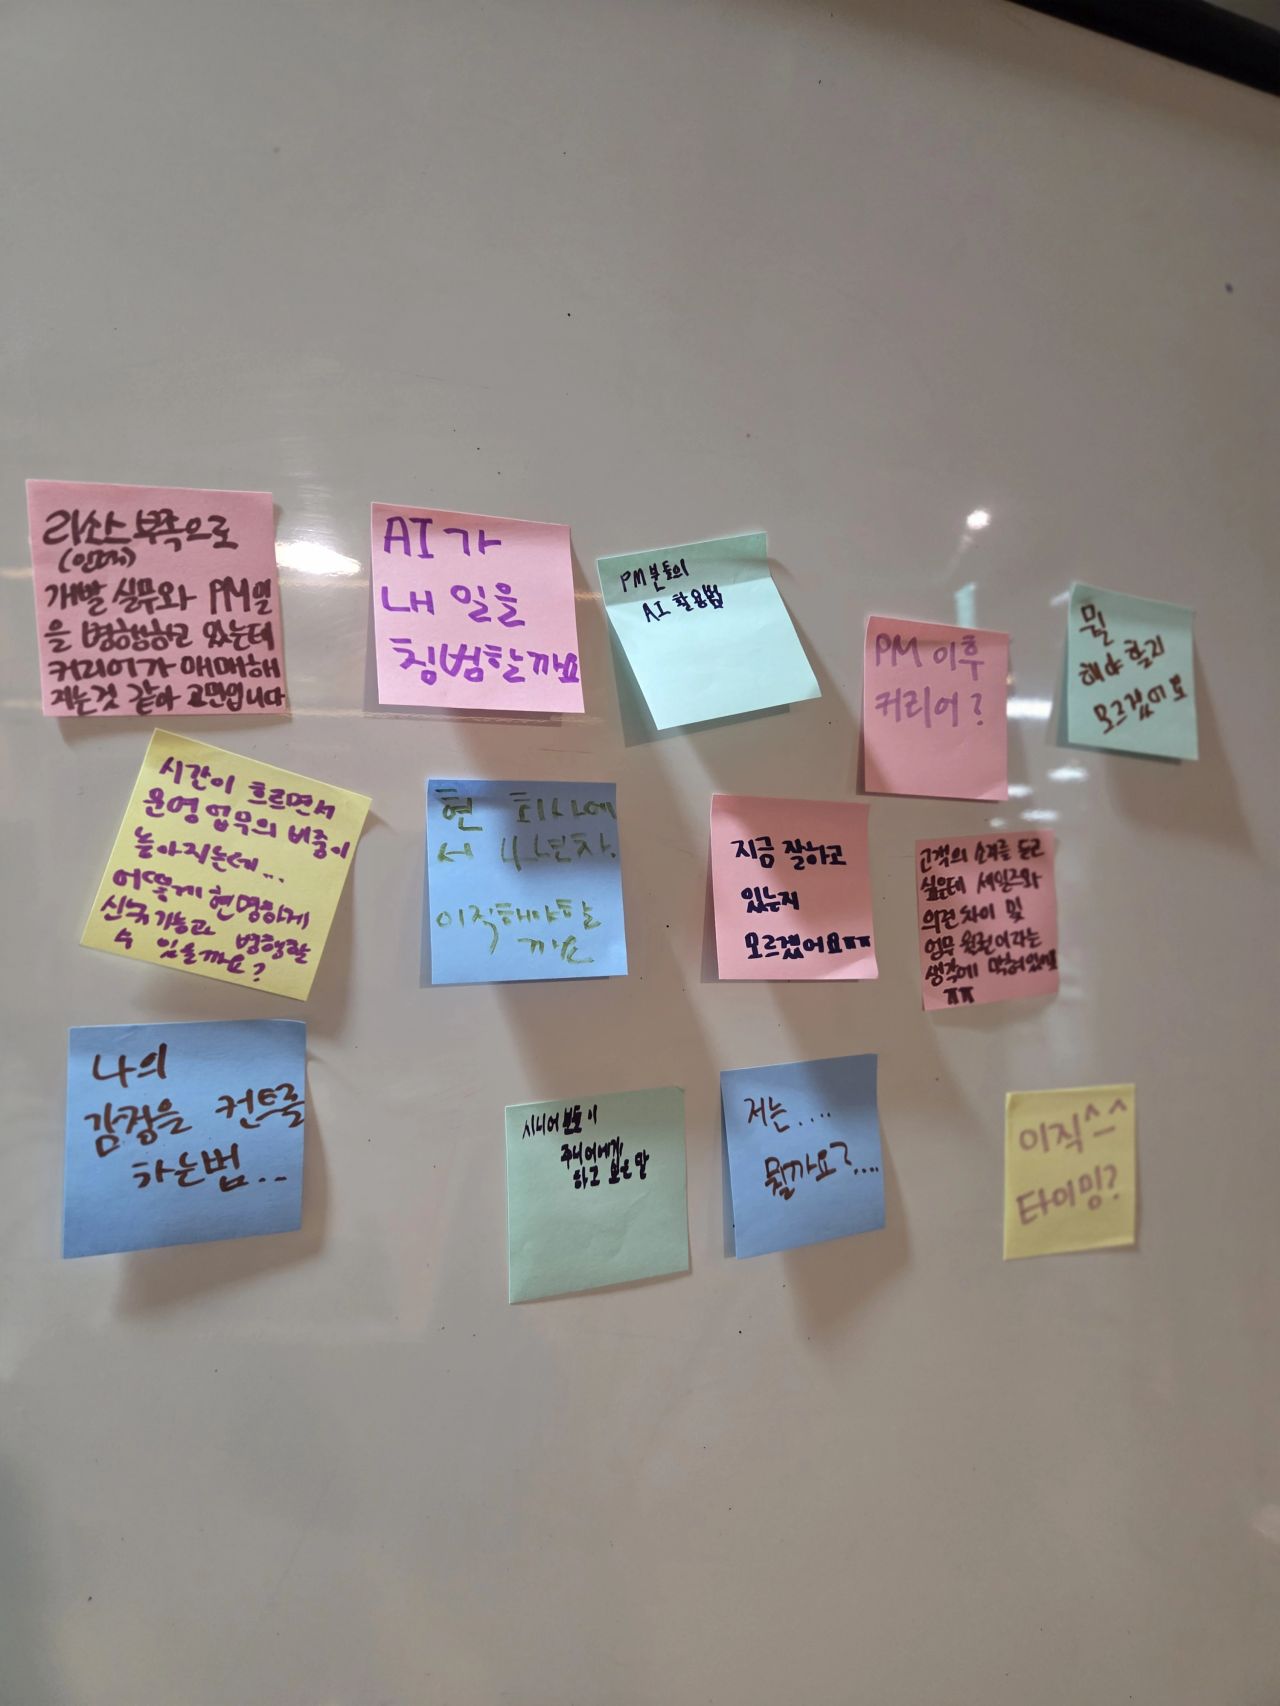 리소스 부족으로
(인력)
개발 실무와 PM일
을 병행하고 있는데
커리어가 애매해
지는것 같아 고민입니다
AI가
내 일을
침범할까요
PM 분들의
AI 활용법
PM 이후
커리어?
뭘
해야 할지
모르겠
시간이 흐르면서
운영 업무의 비중이
높아지는데...
어떻게 현명하게
신규기능과 병행할
수 있을까요?
현 회사에
서 4년차.
이직해야할
까요
지금 잘하고
있는지
모르겠어요ㅠㅠ
고객의 소리를 듣고
싶은데 세일즈와
의견차이 및
업무 월권이라는
생각에 막혀있어요
ㅠㅠ
나의
감정을 컨트롤
하는법...
시니어 분들이
주니어에게
하고 싶은 말
저는....
뭘까요?....
이직^_^
타이밍?